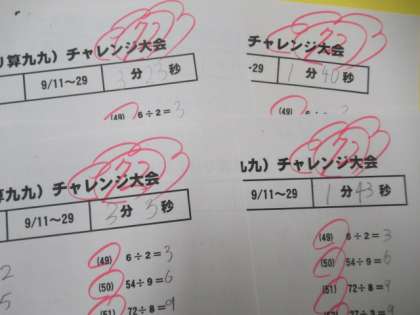 り算九九）チャレンジ大会
9/11〜29 3分23秒
(49) 6÷2=3
チャレンジ大会
-29 1分40秒
(49)
算九九）チャレンジ大会
9/11〜29 3分5秒
(49) 6÷2=3
(50) 54÷9=6
(51) 72÷8=9
2
5
九）チャレンジ大会
9/11〜29 1分43秒
(49) 6÷2=3
(50) 54÷9=6
(51) 72÷8=9